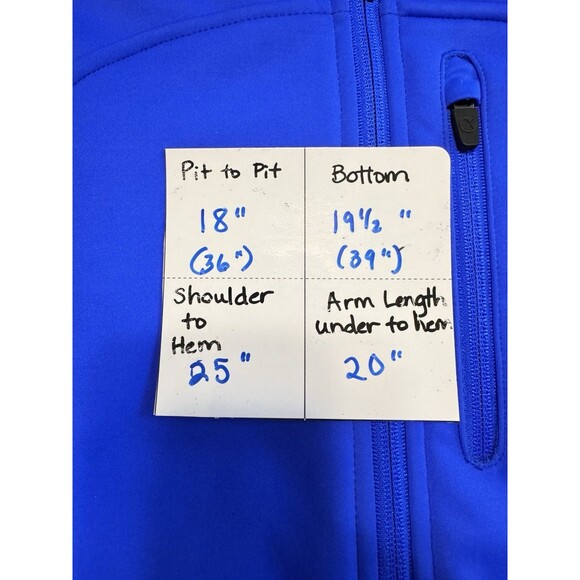 Pit to Pit
18"
(36")
Bottom
19 1/2 "
(39")
Shoulder
to
Hem
25"
Arm Length
under to hem
20"